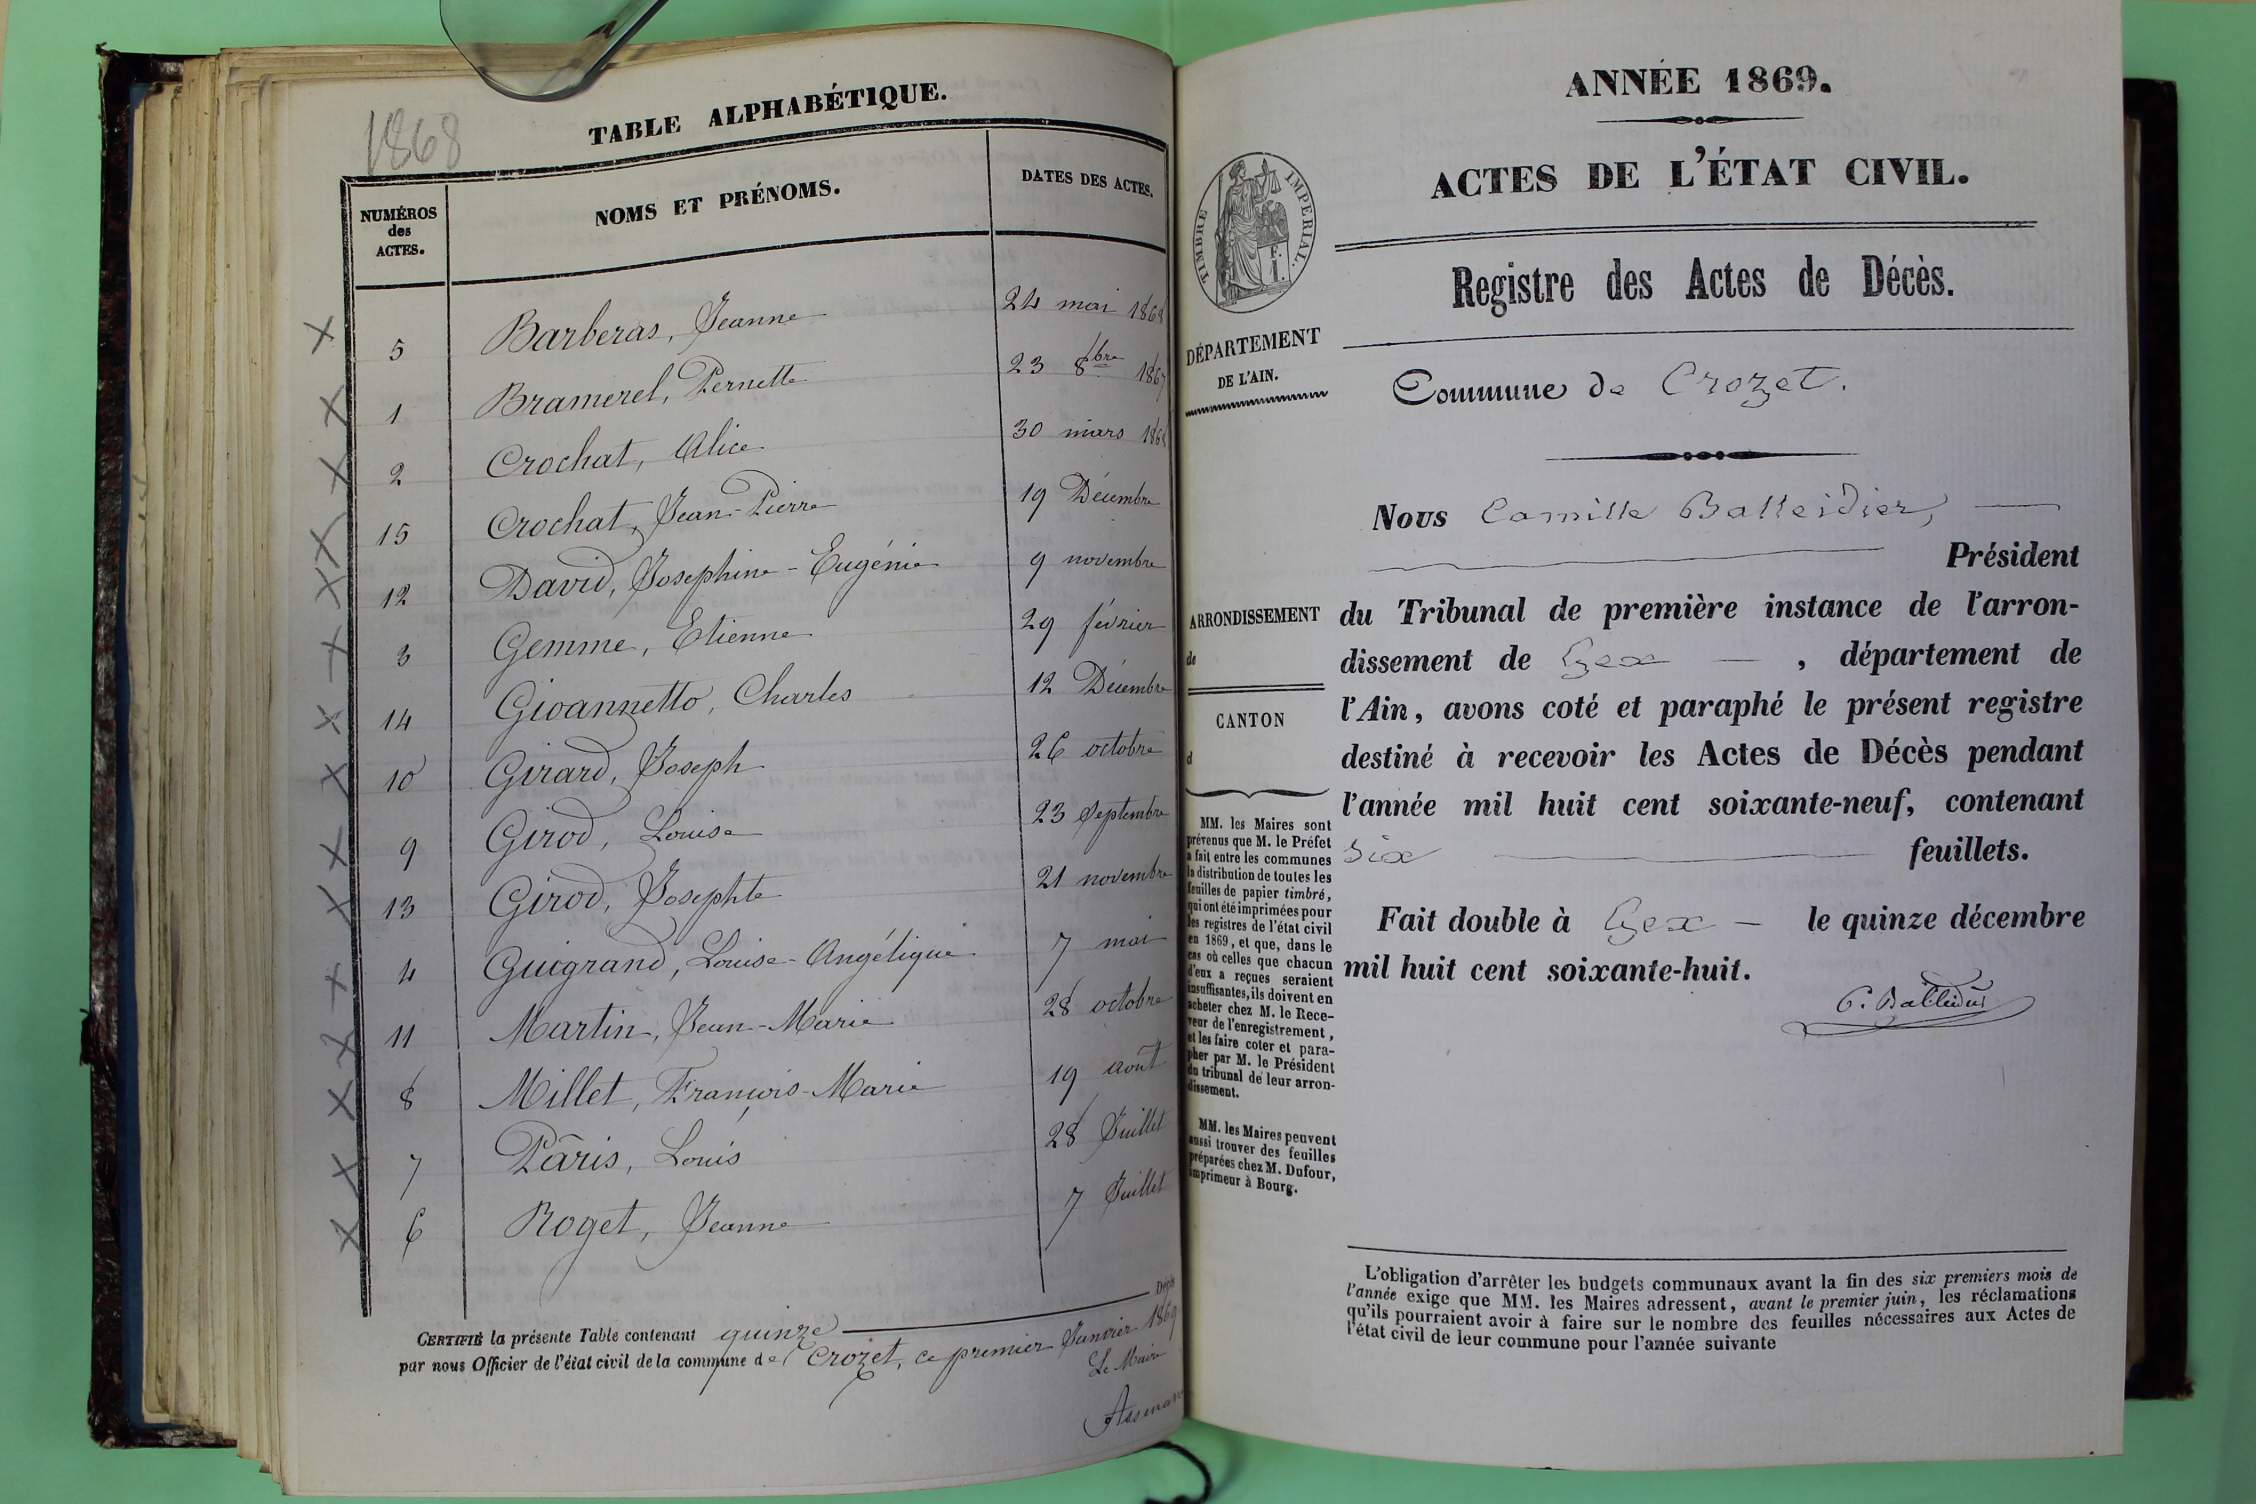 1868
TABLE ALPHABÉTIQUE.
NUMÉROS des ACTES. NOMS ET PRÉNOMS. DATES DES ACTES.
5 Barberas, Jeanne 24 mai 1868
1 Bramerel, Pernette 23 8bre 1867
2 Crochat, Alice 30 mars 1868
15 Crochat, Jean-Pierre 19 Décembre
12 David, Josephine-Eugénie 9 novembre
3 Gemme, Etienne 29 février
14 Gioannetto, Charles 12 Décembre
10 Girard, Joseph 26 octobre
9 Girod, Louise 23 Septembre
13 Girod, Josephte 21 novembre
4 Guigrand, Louise-Angélique 7 mai
11 Martin, Jean-Marie 28 octobre
8 Millet, François-Marie 19 août
7 Pâris, Louis 28 Juillet
6 Roget, Jeanne 7 Juillet
CERTIFIÉ la présente Table contenant quinze Décès
par nous Officier de l'état civil de la commune de Crozet, ce premier Janvier 1869
Le Maire
ANNÉE 1869.
ACTES DE L'ÉTAT CIVIL.
TIMBRE IMPÉRIAL.
F. I.
Registre des Actes de Décès.
DÉPARTEMENT
DE L'AIN.
Commune de Crozet.
Nous Camille Balleidier,
Président
ARRONDISSEMENT
de
CANTON
d
du Tribunal de première instance de l'arron-
dissement de Gex, département de
l'Ain, avons coté et paraphé le présent registre
destiné à recevoir les Actes de Décès pendant
l'année mil huit cent soixante-neuf, contenant
six feuillets.
Fait double à Gex le quinze décembre
mil huit cent soixante-huit.
C. Balleidier
MM. les Maires sont
prévenus que M. le Préfet
a fait entre les communes
la distribution de toutes les
feuilles de papier timbré,
qui ont été imprimées pour
les registres de l'état civil
en 1869, et que, dans le
cas où celles que chacun
d'eux a reçues seraient
insuffisantes, ils doivent en
acheter chez M. le Rece-
veur de l'enregistrement,
et les faire coter et para-
pher par M. le Président
du tribunal de leur arron-
dissement.
MM. les Maires peuvent
aussi trouver des feuilles
préparées chez M. Dufour,
imprimeur à Bourg.
L'obligation d'arrêter les budgets communaux avant la fin des six premiers mois de
l'année exige que MM. les Maires adressent, avant le premier juin, les réclamations
qu'ils pourraient avoir à faire sur le nombre des feuilles nécessaires aux Actes de
l'état civil de leur commune pour l'année suivante